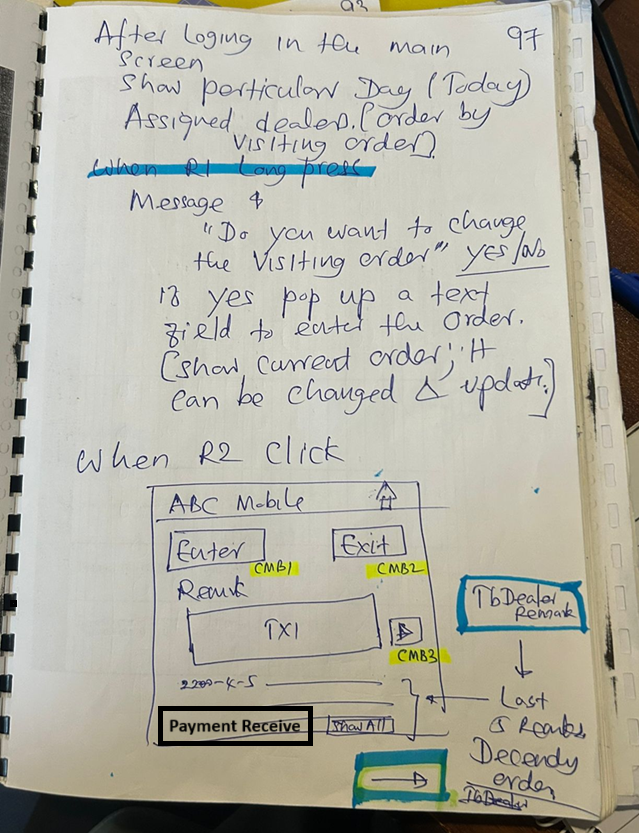 97
After Loging in the main
Screen
Show perticular Day (Today)
Assigned dealers. [order by
Visiting order]
When R1 Long press
Message
"Do you want to change
the Visiting order" Yes/No
if yes pop up a text
field to enter the order.
[show current order, it
can be changed & update.]
When R2 Click
ABC Mobile
Enter
Exit
CMB1
CMB2
Remrk
TX1
CMB3
TbDealer
Remark
Last
5 Remarks
Decendy
order
Payment Receive
Show All
TbDealer